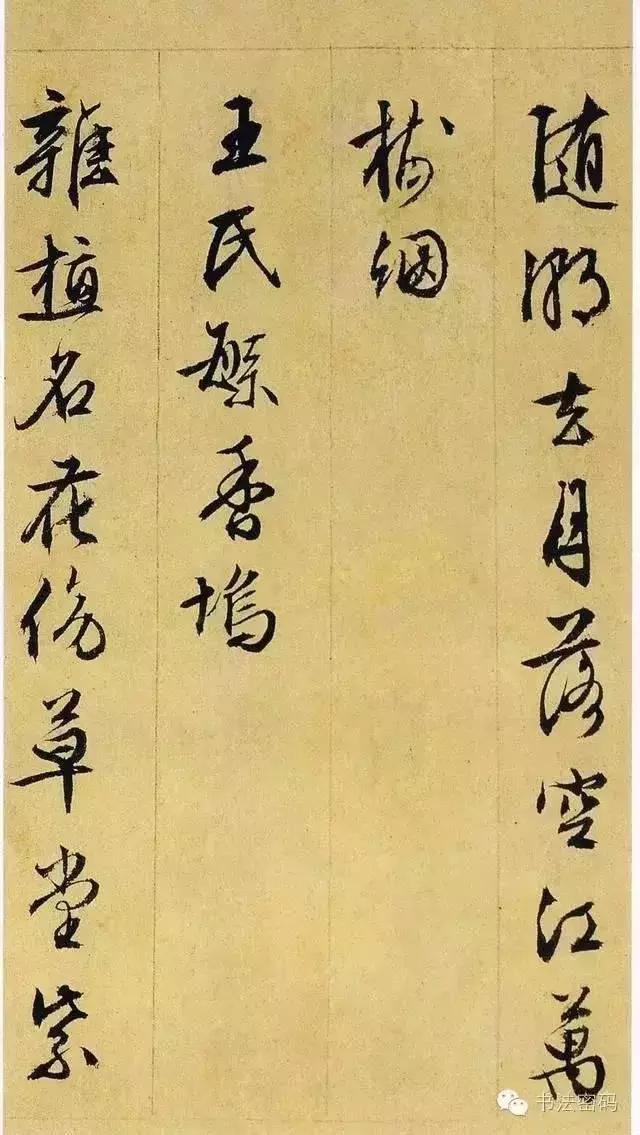 隨潮去月落空江萬
樹烟
王氏繁香塢
雜植名花傍草堂紫
书法密码